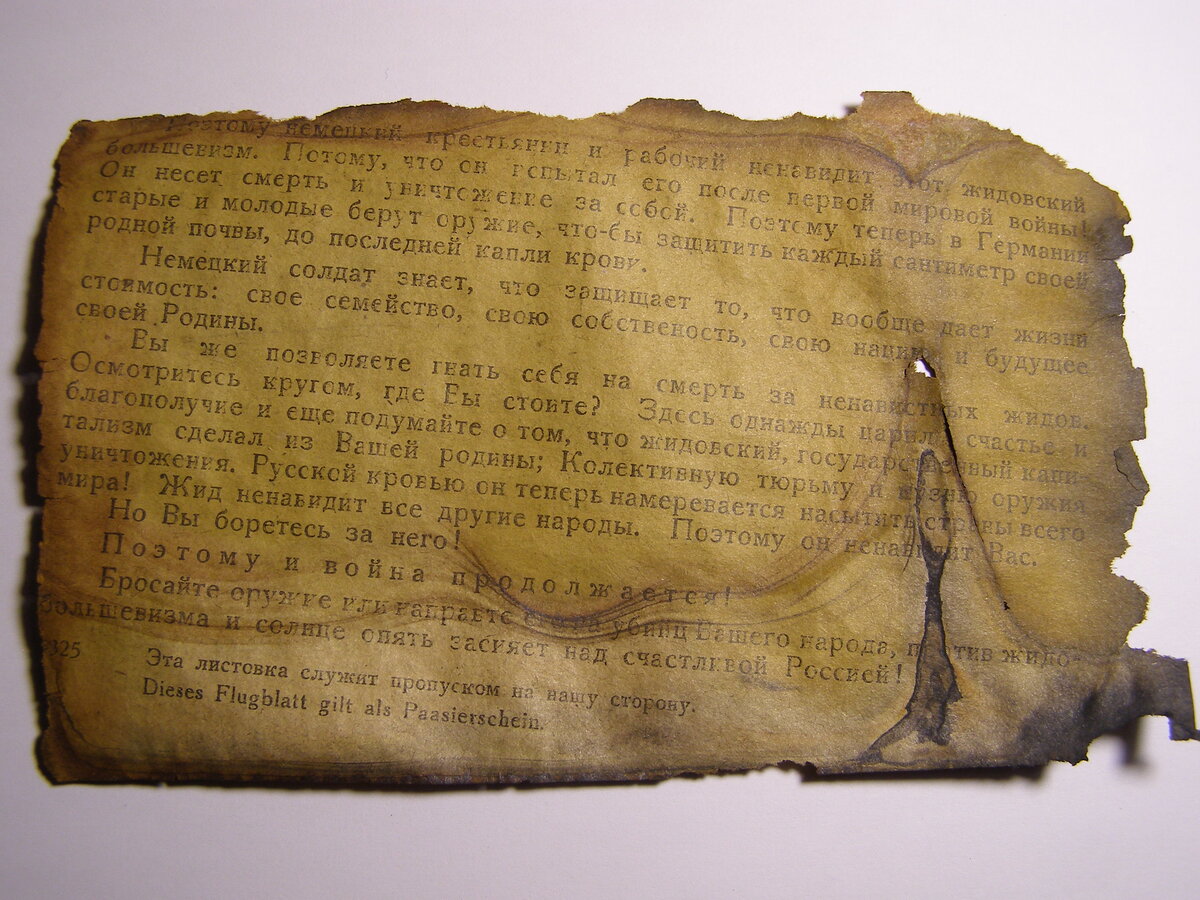 Поэтому немецкий крестьянин и рабочий ненавидит этот жидовский
большевизм. Потому, что он испытал его после первой мировой войны!
Он несет смерть и уничтожение за собой. Поэтому теперь в Германии
старые и молодые берут оружие, что-бы защитить каждый сантиметр своей
родной почвы, до последней капли крови.
Немецкий солдат знает, что защищает то, что вообще дает жизни
стоимость: свое семейство, свою собственость, свою нацию и будущее
своей Родины.
Вы же позволяете гнать себя на смерть за ненавистных жидов.
Осмотритесь кругом, где Вы стоите? Здесь однажды царило счастье и
благополучие и еще подумайте о том, что жидовский, государственный капи-
тализм сделал из Вашей родины; Колективную тюрьму и кузню оружия
уничтожения. Русской кровью он теперь намеревается насытить страны всего
мира! Жид ненавидит все другие народы. Поэтому он ненавидит Вас.
Но Вы боретесь за него!
Поэтому и война продолжается!
Бросайте оружие или направте убийц Вашего народа, против жидо-
большевизма и солнце опять засияет над счастливой Россией!
325
Эта листовка служит пропуском на нашу сторону.
Dieses Flugblatt gilt als Paasierschein.